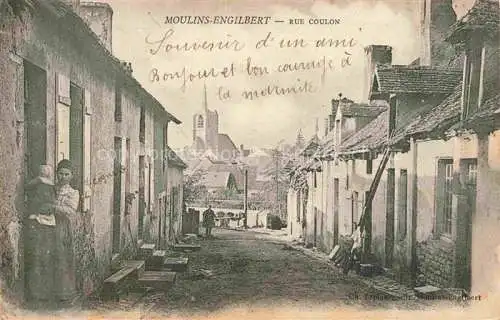 MOULINS-ENGILBERT — RUE COULON
Souvenir d'un ami
Bonjour et bon courage à
la marmite